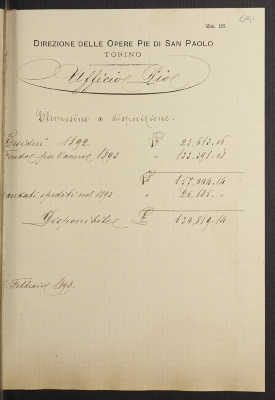 Mon. 125.
591
DIREZIONE DELLE OPERE PIE DI SAN PAOLO
TORINO
Ufficio Pio
Elemosine a disposizione.
Residui 1892 £ 23.613.16
Fondo per l'anno 1893 " 133.391.18
£ 157.004.14
andati spediti nel 1893 " 26.185. "
Disponibile £ 130.819.14
Febbraio 1893.